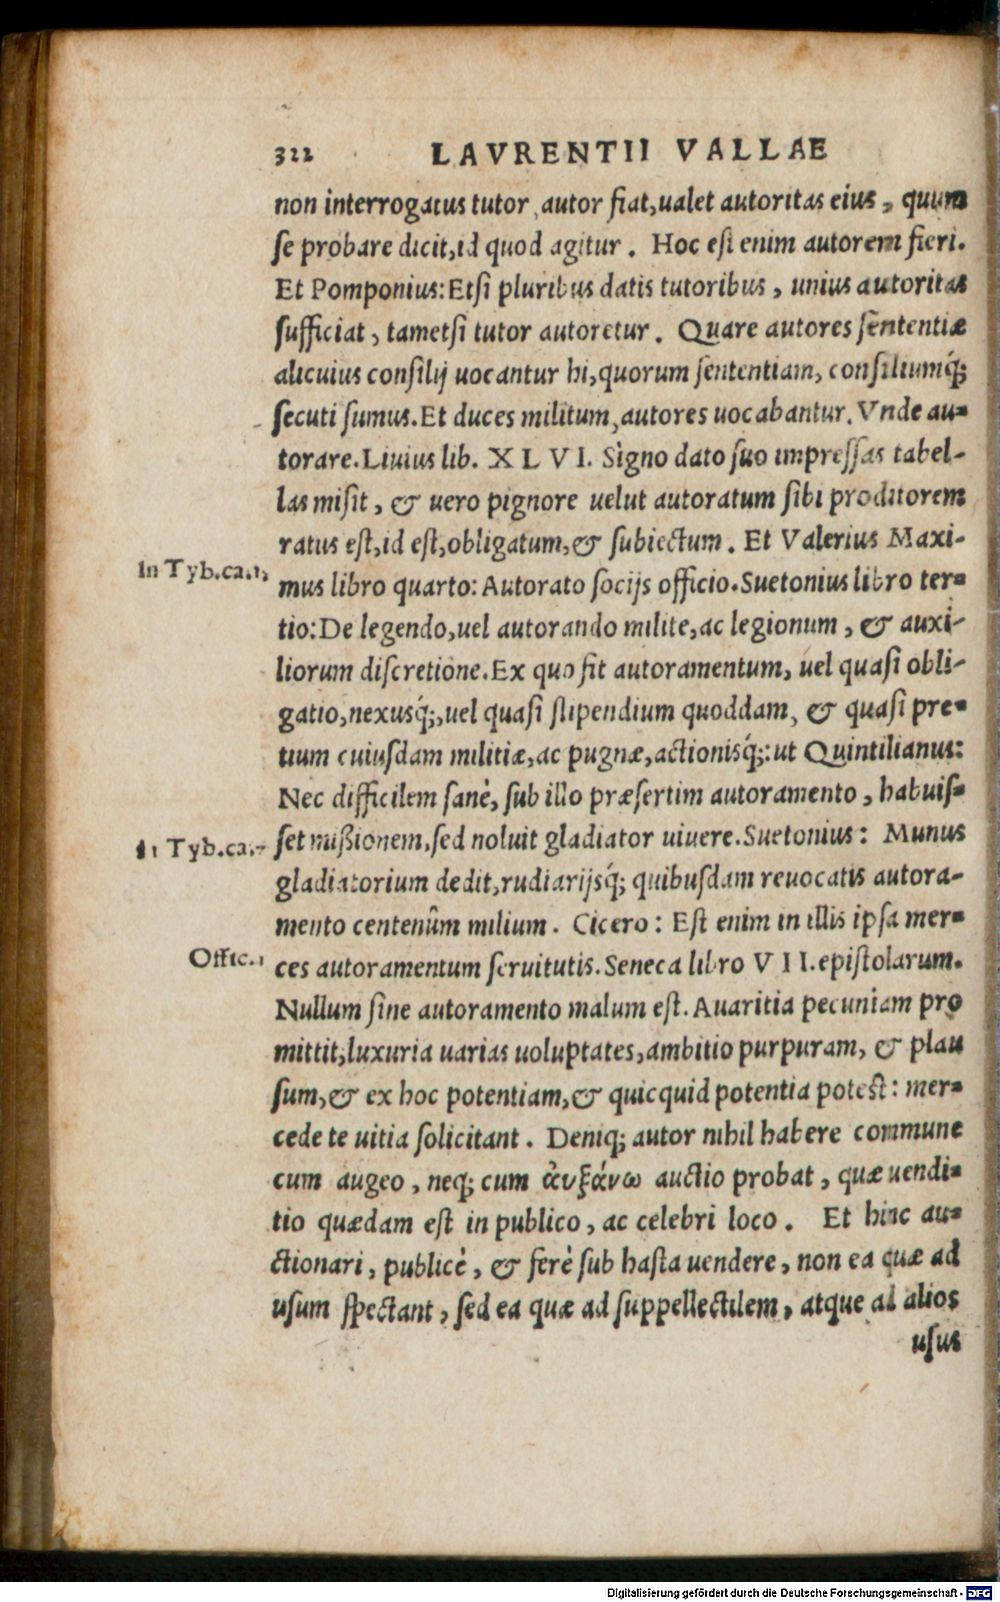 322 LAVRENTII VALLAE
non interrogatus tutor, autor fiat, ualet autoritas eius, quum
se probare dicit, id quod agitur. Hoc est enim autorem fieri.
Et Pomponius: Etsi pluribus datis tutoribus, unius autoritas
sufficiat, tametsi tutor autoretur. Quare autores sententiæ
alicuius consilij uocantur hi, quorum sententiam, consiliumq́;
secuti sumus. Et duces militum, autores uocabantur. Vnde au-
torare. Liuius lib. XLVI. Signo dato suo impressas tabel-
las misit, & uero pignore uelut autoratum sibi proditorem
ratus est, id est, obligatum, & subiectum. Et Valerius Maxi-
In Tyb.ca.
mus libro quarto: Autorato socijs officio. Suetonius libro ter-
tio: De legendo, uel autorando milite, ac legionum, & auxi-
liorum discretione. Ex quo fit autoramentum, uel quasi obli-
gatio, nexusq́;, uel quasi stipendium quoddam, & quasi pre-
tium cuiusdam militiæ, ac pugnæ, actionisq́;: ut Quintilianus:
Nec difficilem sanè, sub illo præsertim autoramento, habuis-
In Tyb.ca.
set mißionem, sed noluit gladiator uiuere. Suetonius: Munus
gladiatorium dedit, rudiarijsq́; quibusdam reuocatis autora-
mento centenûm milium. Cicero: Est enim in illis ipsa mer-
Offic.
ces autoramentum seruitutis. Seneca libro VII. epistolarum.
Nullum sine autoramento malum est. Auaritia pecuniam pro
mittit, luxuria uarias uoluptates, ambitio purpuram, & plau
sum, & ex hoc potentiam, & quicquid potentia potest: mer-
cede te uitia solicitant. Deniq; autor nihil habere commune
cum augeo, neq; cum ἀυξάνω auctio probat, quæ uendi-
tio quædam est in publico, ac celebri loco. Et hinc au-
ctionari, publicè, & ferè sub hasta uendere, non ea quæ ad
usum spectant, sed ea quæ ad suppellectilem, atque ad alios
usus
Digitalisierung gefördert durch die Deutsche Forschungsgemeinschaft - DFG